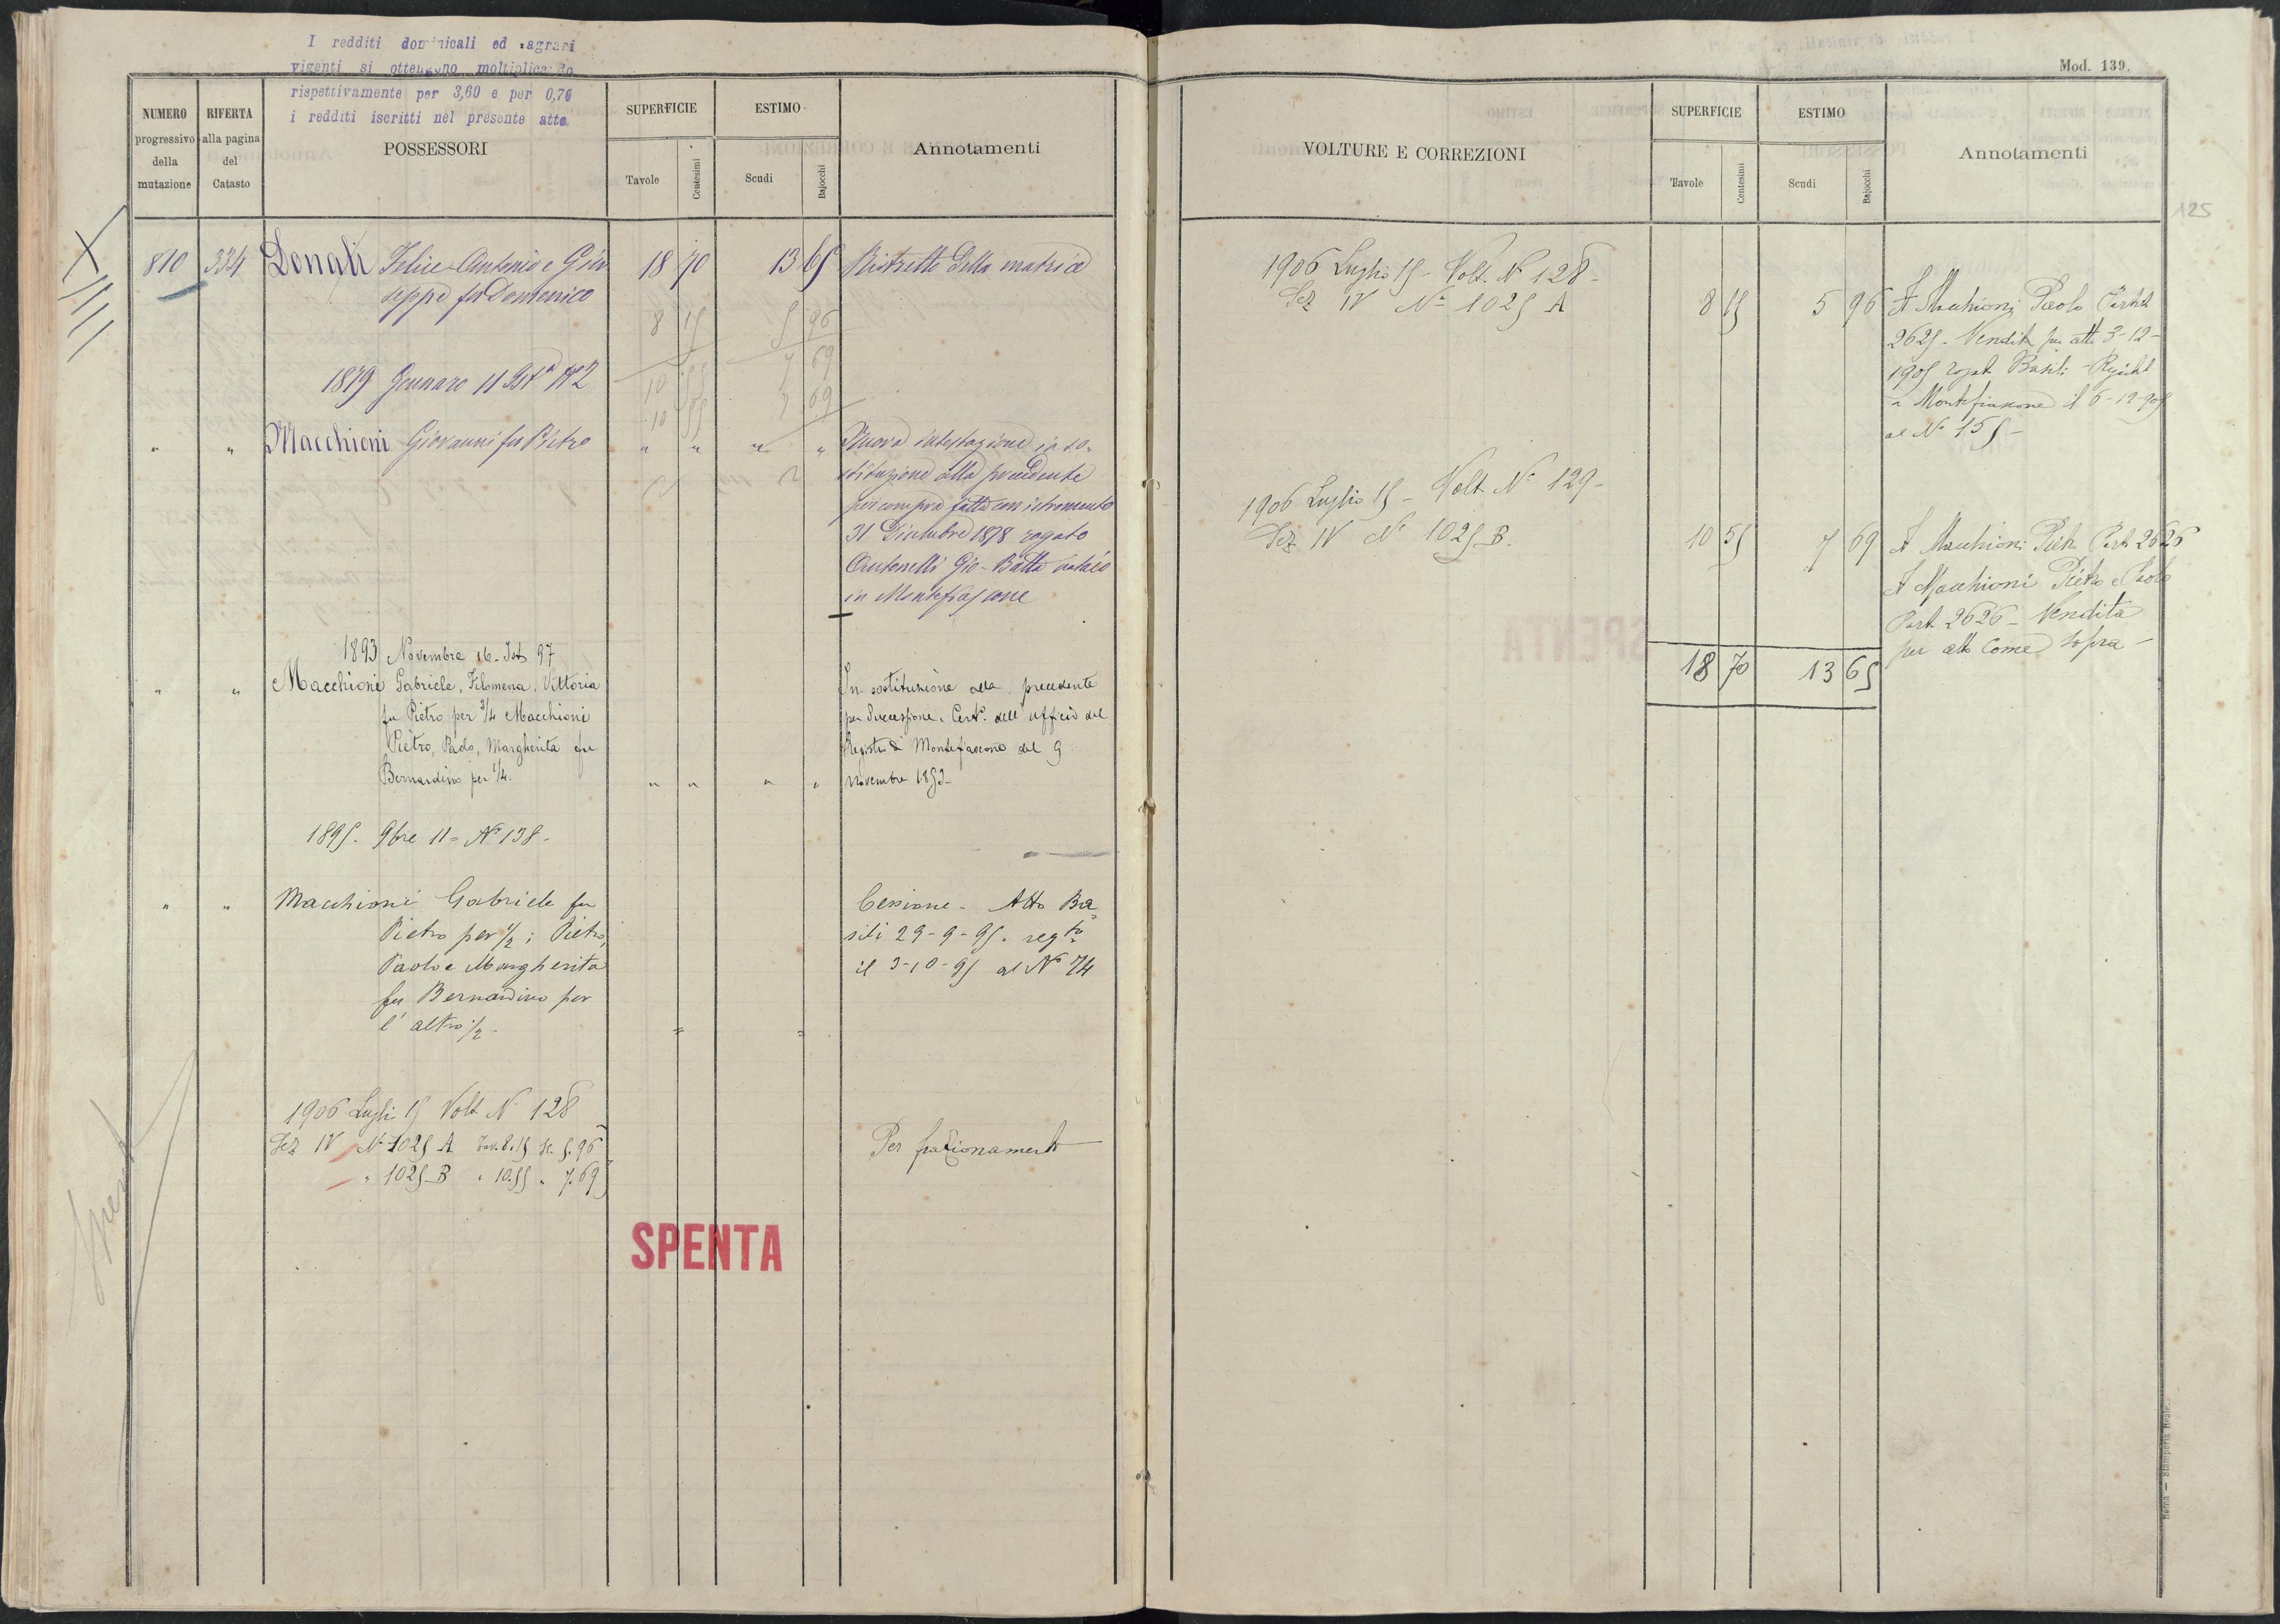 I redditi dominicali ed agrari
vigenti si ottengono moltiplicando
rispettivamente per 3,60 e per 0,76
i redditi iscritti nel presente atto.
NUMERO
progressivo
della
mutazione
RIFERTA
alla pagina
del
Catasto
POSSESSORI
SUPERFICIE
Tavole
Centesimi
ESTIMO
Scudi
Bajocchi
Annotamenti
810 334 Donati Felice Antonio e Giu 18 70 13 65 Ristretto della matrice
seppe fu Domenico
8 15 5 96
10 55 7 69
1879 Gennaro 11 N° 2
10 55 7 69
" " Macchioni Giovanni fu Pietro " " " " Nuova intestazione in so-
stituzione alla precedente
per compra fatta con istromento
31 Dicembre 1878 rogato
Antonelli Gio-Batta notaio
in Montefiascone
1893 Novembre 16 - 97
" " Macchioni Gabriele, Filomena, Vittoria In sostituzione alla precedente
fu Pietro per 3/4 Macchioni per Successione. Cert°. dell'ufficio del
Pietro, Paolo, Margherita fu Registro di Montefiascone del 9
Bernardino per 1/4. " " " " novembre 1893-
1895. 9bre 11 = N° 138-
" " Macchioni Gabriele fu Cessione - Atto Ba
Pietro per 1/2; Pietro, sili 29-9-95. regto
Paolo e Margherita il 3-10-95 al N° 74
fu Bernardino per
l'altro 1/2- = =
1906 Luglio 15 Volt N 128
Sez IV N° 1025 A Tav. 8.15 Sc. 5.96 Per frazionamento
" 1025 B " 10.55 " 7.69
Spenta
SPENTA
Mod. 139.
VOLTURE E CORREZIONI
SUPERFICIE
Tavole
Centesimi
ESTIMO
Scudi
Bajocchi
Annotamenti
125
1906 Luglio 15 - Volt. N° 128-
Sez IV N° 1025 A 8 15 5 96 A Macchioni Paolo Partita
2625. Vendita per atto 3-12-
1905 rogato Basili - Registrato
a Montefiascone il 6-12-905
al N° 155-
1906 Luglio 15 - Volt. N° 129-
Sez IV N° 1025 B. 10 55 7 69 A Macchioni Pietro Part 2626
A Macchioni Pietro e Paolo
Part 2626 - Vendita
per atto come sopra -
18 70 13 65
Roma — Stamperia Reale.